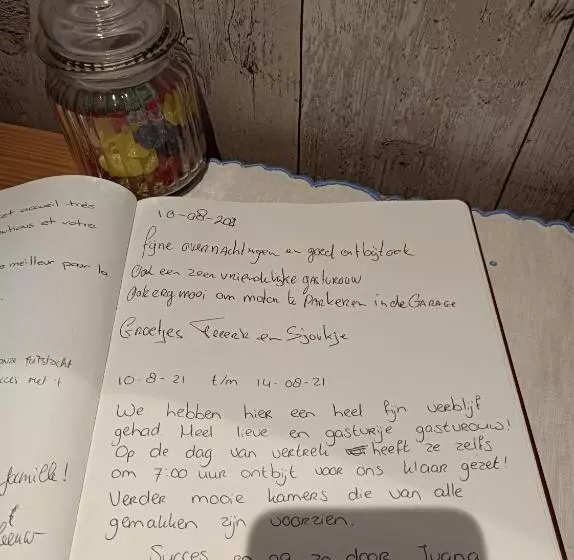 et accueil très
utions et votre
meilleur pour la
onze fietstocht
cces met 't
famille!
10-08-201
Fijne overnachtingen en goed ontbijt ook
Ook een zeer vriendelijke gastvrouw
Ook erg mooi om moten te Parkeren in de GARAGE
Groetjes en Sjoukje
10-8-21 t/m 14-08-21
We hebben hier een heel fijn verblijf
gehad. Heel lieve en gastvrije gastvrouw!
Op de dag van vertrek heeft ze zelfs
om 7:00 uur ontbijt voor ons klaar gezet!
Verder mooie kamers die van alle
gemakken zijn voorzien.
Succes en ga zo door